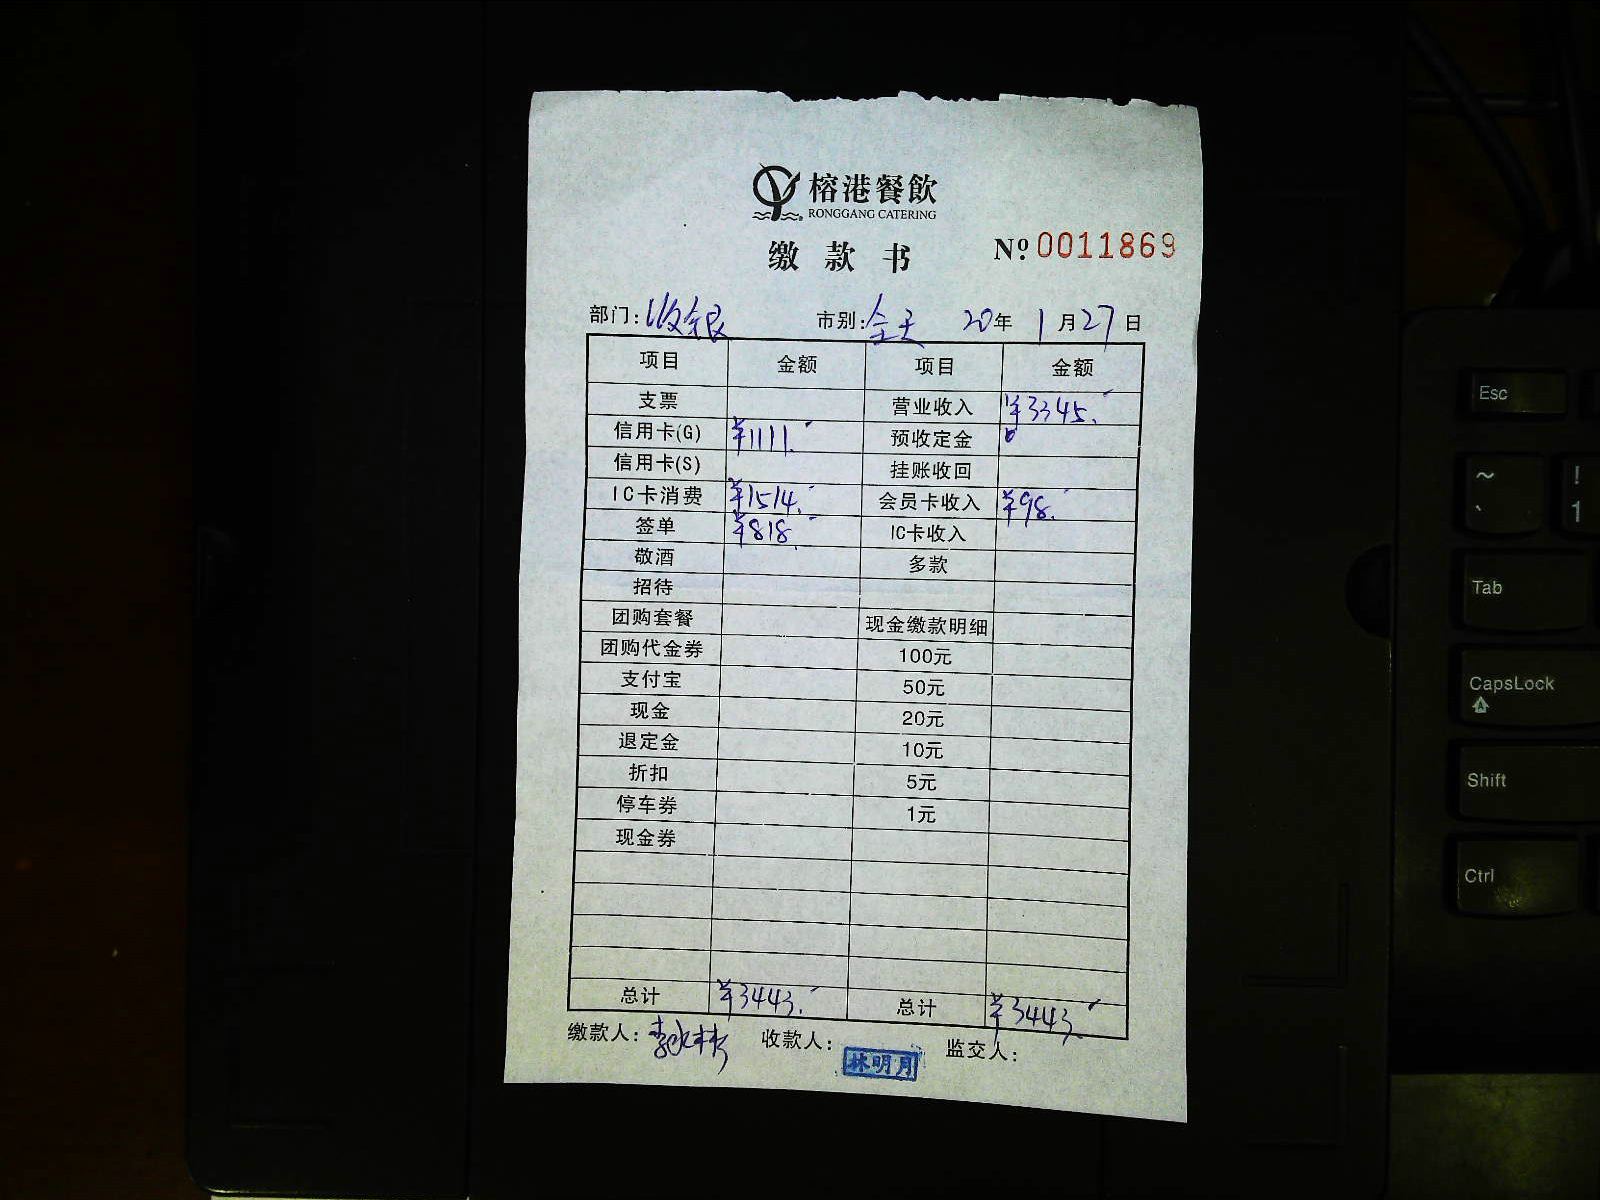 榕港餐飲
RONGGANG CATERING
缴款书 Nº: 0011869
部门: 收银 市别: 全天 20年 1月27日
项目 金额 项目 金额
支票 营业收入 ¥3345.-
信用卡(G) ¥1111.- 预收定金
信用卡(S) 挂账收回
IC卡消费 ¥1514.- 会员卡收入 ¥98.-
签单 ¥818.- IC卡收入
敬酒 多款
招待
团购套餐 现金缴款明细
团购代金券 100元
支付宝 50元
现金 20元
退定金 10元
折扣 5元
停车券 1元
现金券
总计 ¥3443.- 总计 ¥3443.-
缴款人: 收款人: 林明月 监交人:
Esc
~ !
` 1
Tab
CapsLock
Shift
Ctrl